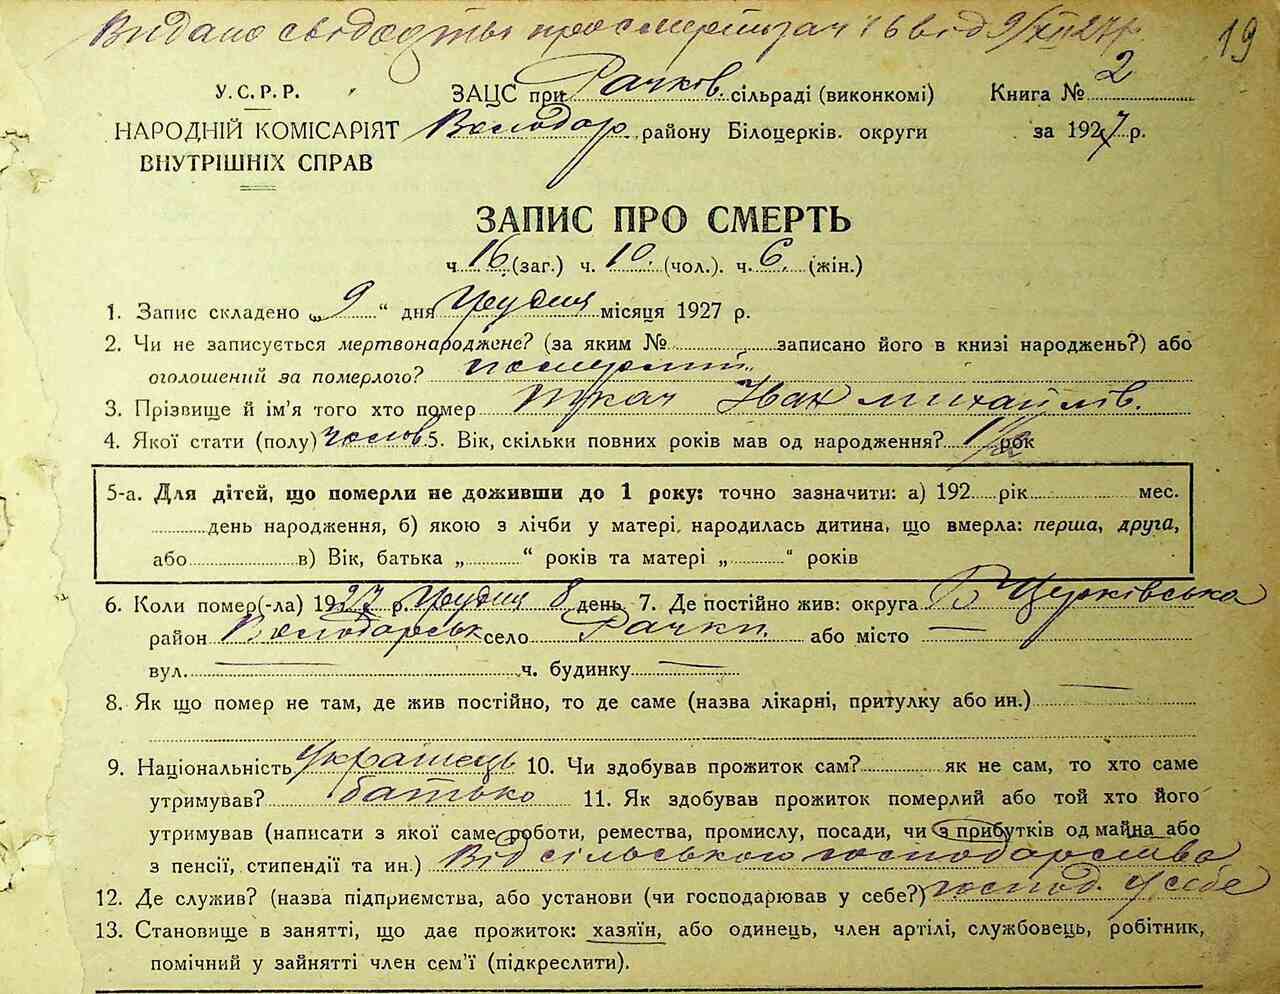 Видано свідоцтво про смерть за ч 16 від 9/XII 27 р.
19
У.С.Р.Р.
ЗАЦС при Рачків. сільраді (виконкомі) Книга № 2
НАРОДНІЙ КОМІСАРІЯТ Володар. району Білоцерків. округи за 1927 р.
ВНУТРІШНІХ СПРАВ
ЗАПИС ПРО СМЕРТЬ
ч 16 (заг.) ч. 10. (чол.). ч. 6. (жін.)
1. Запис складено „ 9 “ дня Грудня місяця 1927 р.
2. Чи не записується мертвонароджене? (за яким № записано його в книзі народжень?) або
оголошений за померлого? померлий
3. Прізвище й ім'я того хто помер Ткач Іван Михайлів.
4. Якої стати (полу) чолов. 5. Вік, скільки повних років мав од народження? 1 1/2 рок
5-а. Для дітей, що померли не доживши до 1 року: точно зазначити: а) 192 рік мес.
день народження, б) якою з лічби у матері народилась дитина, що вмерла: перша, друга,
або в) Вік, батька „ “ років та матері „ “ років
6. Коли помер(-ла) 1927 р. Грудня 8 день 7. Де постійно жив: округа Б Церківська
район Володарськ село Рачки. або місто —
вул. — ч. будинку —
8. Як що помер не там, де жив постійно, то де саме (назва лікарні, притулку або ин.) —
9. Національність Українець 10. Чи здобував прожиток сам? як не сам, то хто саме
утримував? батько 11. Як здобував прожиток померлий або той хто його
утримував (написати з якої саме роботи, ремества, промислу, посади, чи з прибутків од майна або
з пенсії, стипендії та ин.) Від сільського господарства
12. Де служив? (назва підприємства, або установи (чи господарював у себе?) господ. у себе
13. Становище в занятті, що дає прожиток: хазяїн, або одинець, член артілі, службовець, робітник,
помічний у зайнятті член сем'ї (підкреслити).